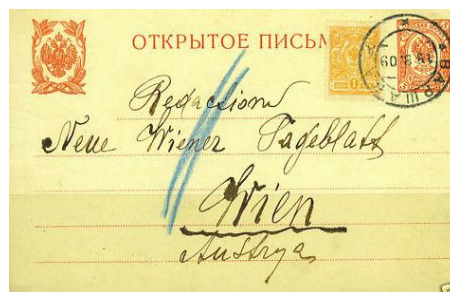 ОТКРЫТОЕ ПИСЬМ
ВАРШАВА
19 8 09
Redaction
Neue Wiener Tageblatt
Wien
Austrya